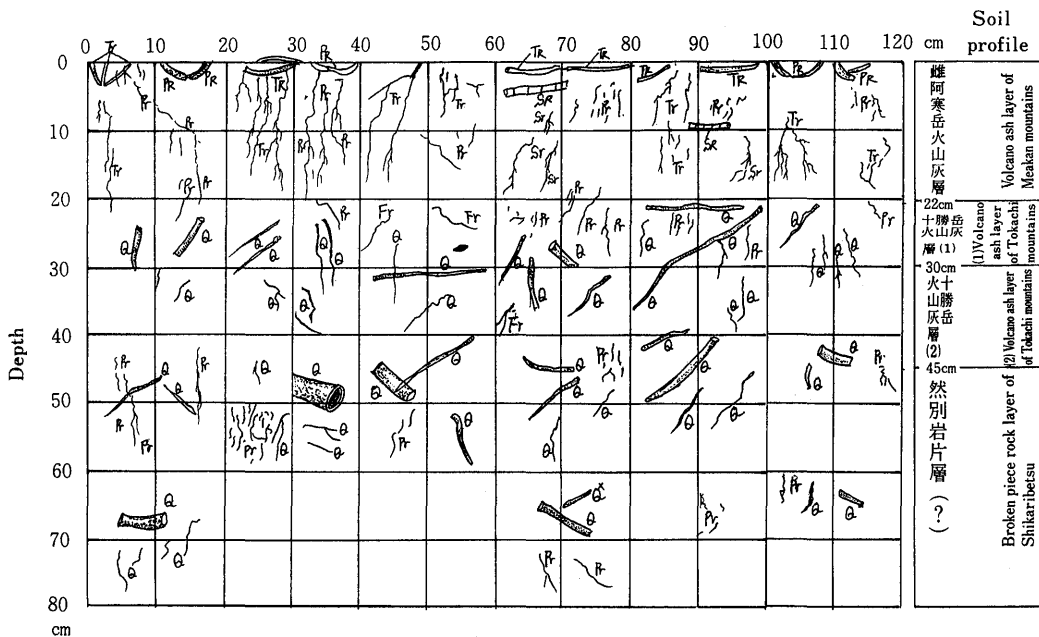 Soil
profile
0 10 20 30 40 50 60 70 80 90 100 110 120 cm
Depth
0
10
20
30
40
50
60
70
80
cm
Tr Pr TR TR
Pr PR TR Pr TR TR PR PR
Pr Tr SR Pr Tr Pr Pr
Pr Sr SR Tr
Tr Tr Pr Pr Pr Sr Tr Sr Tr
Pr Pr Pr
Pr Fr Fr Pr Q Pr Q Pr
Q Q Q Q Q Pr Pr Q Pr
Q Q Q Q Q Q Q Q
Q Q Q Q Q Q Q
Fr
Pr Pr Q Q Pr Q Q Pr
Q Q Q Q Q Q Q
Pr Pr Pr Q Q Pr Q Q Q Q
Q
Q Q Q Pr Q Q
Q Pr
Q Q Pr Pr
雌阿寒岳火山灰層
Volcano ash layer of
Meakan mountains
22cm
十勝岳
火山灰
層(1)
(1)Volcano
ash layer
of Tokachi
mountains
30cm
火十
山勝
灰岳
層
(2)
(2)Volcano ash layer
of Tokachi mountains
45cm
然別岩片層(?)
Broken piece rock layer of
Shikaribetsu